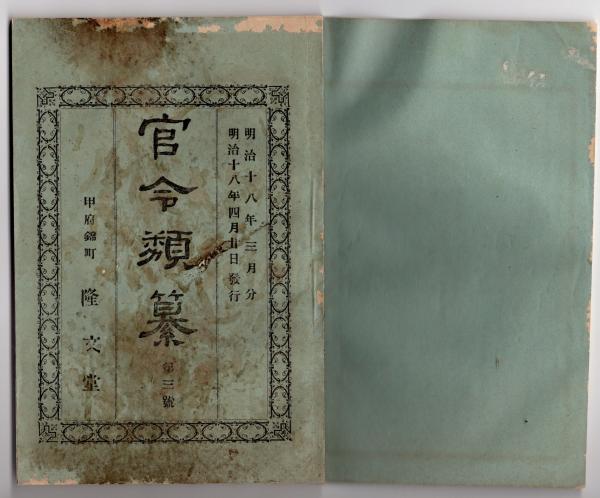 明治十八年三月分
明治十八年四月廿日發行
官令類纂
第三號
甲府錦町
隆文堂